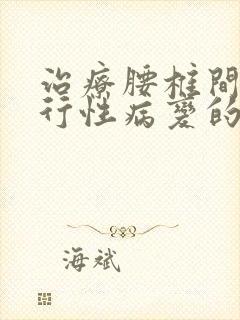 治療腰椎間
行性病變的
海斌